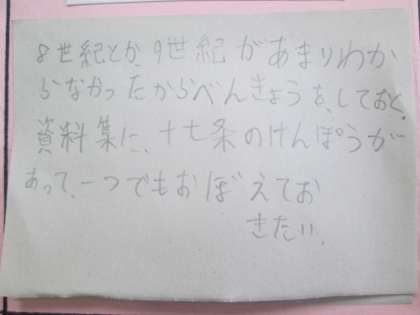 8世紀とか、9世紀があまりわか
らなかったからべんきょうを、しておく。
資料集に、十七条のけんぽうが
あって、一つでもおぼえてお
きたい。